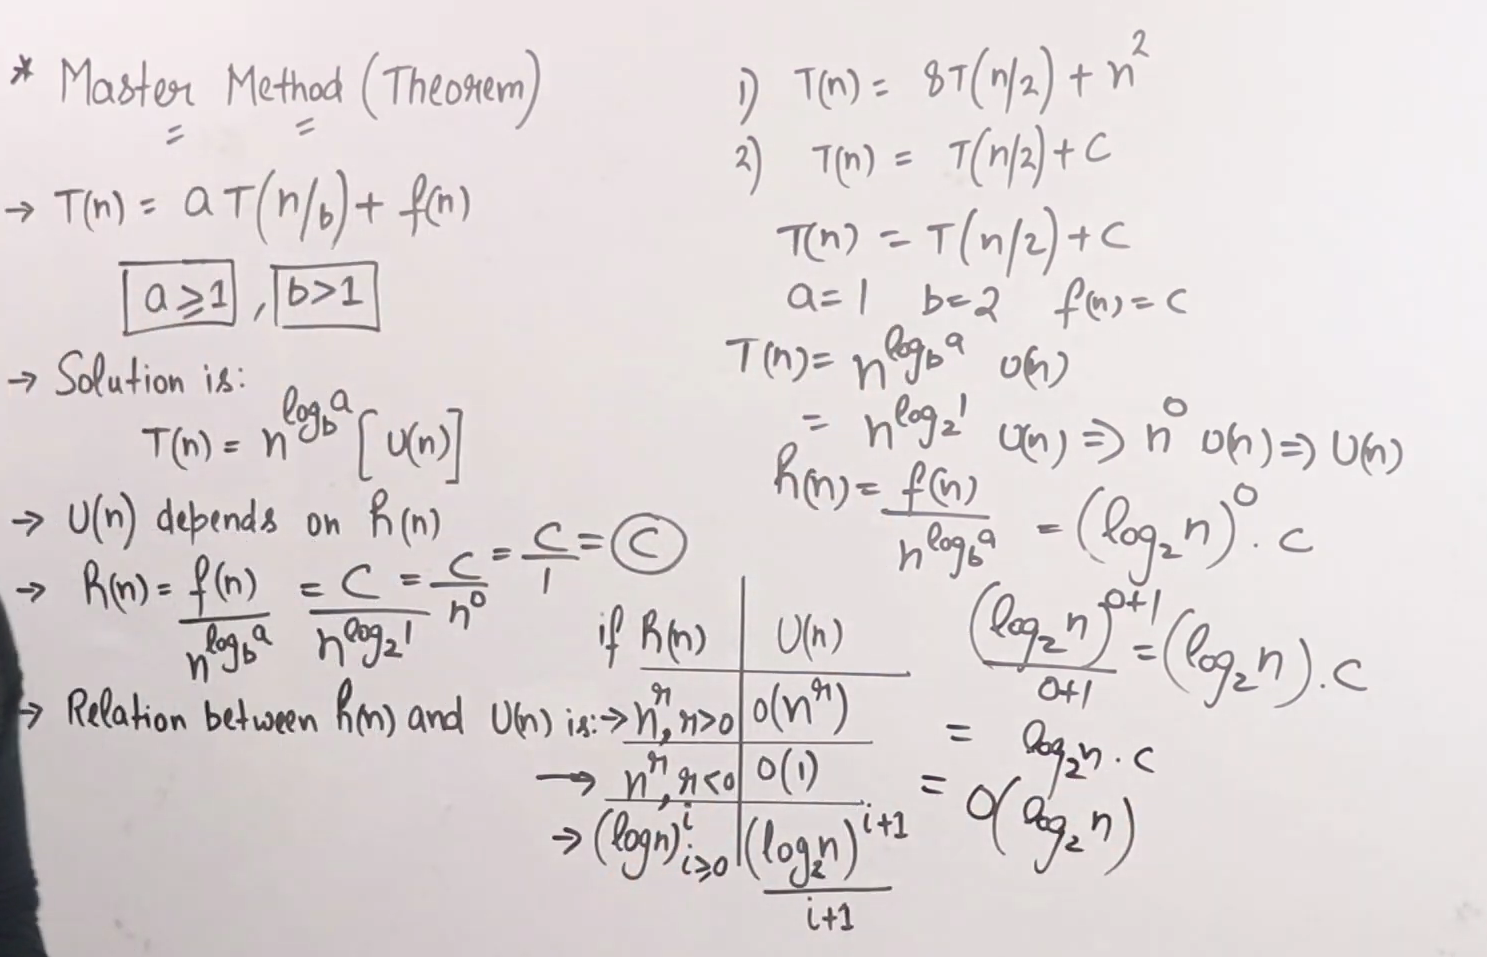 * Master Method (Theorem)
→ T(n) = aT(n/b) + f(n)
a≥1, b>1
→ Solution is:
T(n) = n^{log_b a} [U(n)]
→ U(n) depends on h(n)
→ h(n) = f(n)/n^{log_b a} = C/n^{log_2 1} = C/n^0 = C/1 = C
→ Relation between h(n) and U(n) is:→
if h(n) | U(n)
n^r, r>0 | O(n^r)
→ n^r, r<0 | O(1)
→ (log n)^i i≥0 | (log_2 n)^{i+1}/i+1
1) T(n) = 8T(n/2) + n^2
2) T(n) = T(n/2) + C
T(n) = T(n/2) + C
a=1 b=2 f(n) = C
T(n) = n^{log_b a} U(n)
= n^{log_2 1} U(n) ⇒ n^0 U(n) ⇒ U(n)
h(n) = f(n)/n^{log_b a} = (log_2 n)^0 . C
(log_2 n)^{0+1}/0+1 = (log_2 n).C
= log_2 n . C
= O(log_2 n)